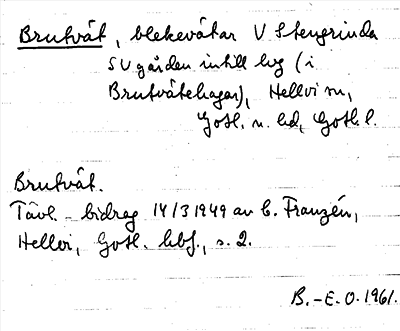 Brutvät, blekevätar V Stengrinda
SV gården intill lvg (i
Brutvätehagar), Hellvi sn,
Gotl. n. hd, Gotl. l.
Brutvät.
Tävl.-bidrag 14/3 1949 av C. Franzén,
Hellvi, Gotl. hbf., s. 2.
B.-E. O. 1961.